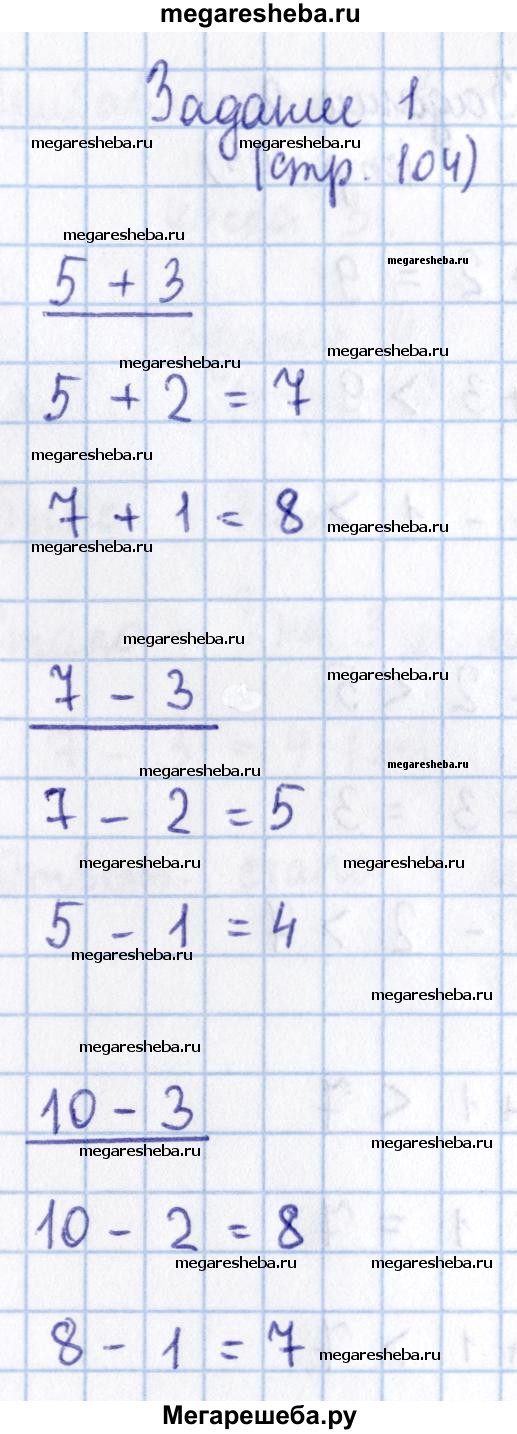 megaresheba.ru
Задание 1
megaresheba.ru megaresheba.ru
(стр. 104)
megaresheba.ru
megaresheba.ru
5 + 3
megaresheba.ru
megaresheba.ru
5 + 2 = 7
megaresheba.ru
7 + 1 = 8
megaresheba.ru
megaresheba.ru
megaresheba.ru
megaresheba.ru
7 - 3
megaresheba.ru
megaresheba.ru
7 - 2 = 5
megaresheba.ru megaresheba.ru
5 - 1 = 4
megaresheba.ru
megaresheba.ru
megaresheba.ru
10 - 3
megaresheba.ru
megaresheba.ru
10 - 2 = 8
megaresheba.ru megaresheba.ru
8 - 1 = 7
megaresheba.ru
Мегарешеба.ру